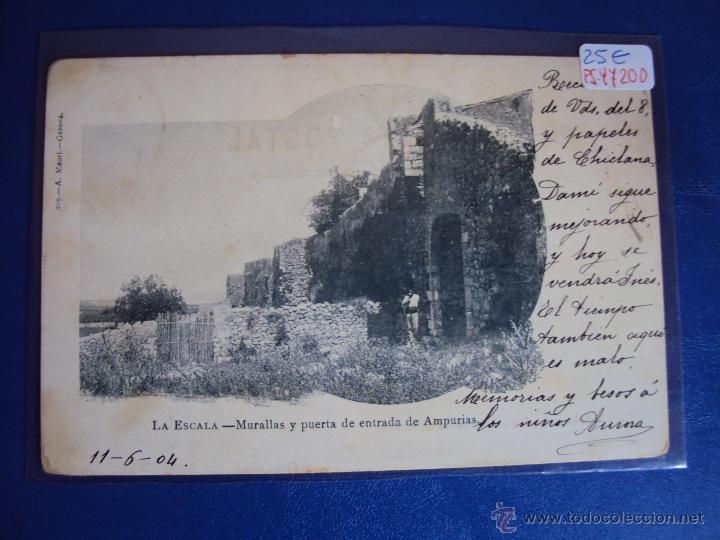 25€
PS-47200
209.—A. Mauri.—Gerona.
de Vds. del 8,
y papeles
de Chiclana.
Damí sigue
mejorando,
y hoy se
vendrá Inés.
El tiempo
tambien aquí
es malo.
Memorias y besos á
los niños Aurora
LA ESCALA —Murallas y puerta de entrada de Ampurias.
11-6-04.
© www.todocoleccion.net